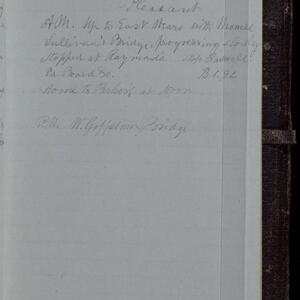 Pleasant
A.M. Up to East Wears with
Sullivan's Bridge, progressing slowly
Stopped at Raymonds
Pd Bond &c. B 1.92
Home to Parkers at Noon
P.M. W. Goffstown Bridge